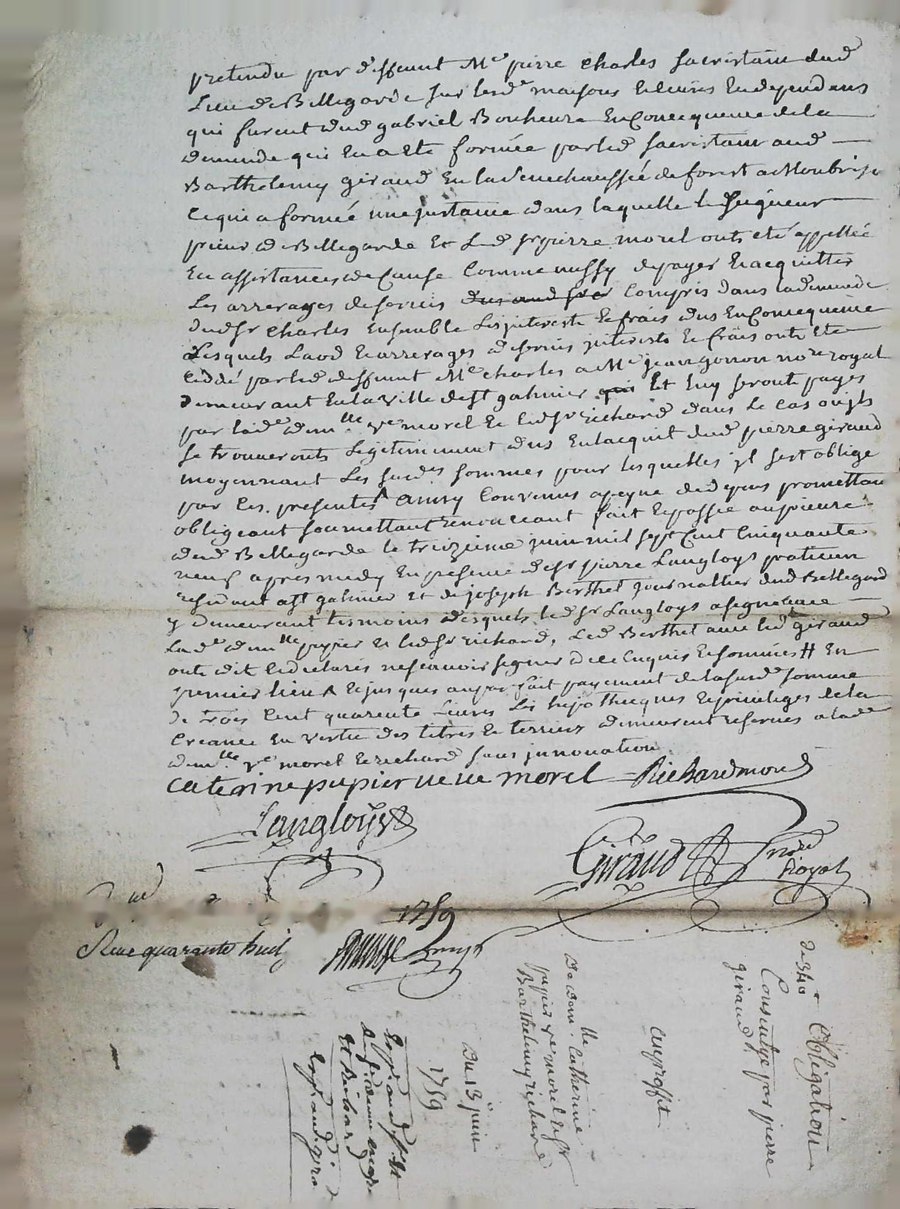 pretendu par deffunt Me pierre Charles sacristain dud
Lieu de Bellegarde sur lesd maisons
qui furent dud gabriel Bonheure En Concequence de la
demande qui En a Ete formée par led sacristain aud
Barthelemy giraud En la Senechaussée de forest a Montbrison
Ce qui a formée une justance dans laquelle le Seigneur
prieur de Bellegarde Et Led Sr pierre morel onts eté appellée
En assistances de Cause Comme aussy de payer Et acquitter
Les arrerages de servis Compris dans la demande
dud Sr Charles Ensemble Les juterests Et frais dus En Concequence
desquels Laod Et arrerages de servis juterests Et frais onts Ete
Ceddé par led deffunt Me Charles a Me jean gonon nore royal
demeurant En la ville de St galmier Et Luy seront payes
par lade dmlle ve morel Et led Sr richard dans Le cas ou jls
se trouveronts Legitimement dus En lacquit dud pierre giraud
moyennant Les susdes sommes pour lesquelles jl sest oblige
par Ces presentes Ainsy Convenus a peyne promettant
obligeant soumettant renonceant fait Et passée au prieure
dud Bellegarde le treizieme juin mil sept Cent Cinquante
neuf apres midy En presence de Sr pierre Langloys praticien
residant a St galmier Et de joseph Berthet journallier dud Bellegarde
y demeurant temoins desquels led Sr Langloys a signé avec
Lade dmlle papier Et led Sr richard, Led Berthet avec led giraud
onts dit Et declarés ne scavoir signer de ce Enquis Et sommés H En
premier lieu & Et jusques au parfait payement de la susde somme
de trois Cent quarente Livres Les hypotheques Et privileges de la
Creance En vertu des titres Et terriers demeurent reservés a lade
dmlle ve morel Et richard sans jnnovation
caterine papier veve morel Richardmond
Langloys
Giraud nore
Royal
1759
Recu quarante huit
de 340
Obligation
Consentye par pierre
giraud
Au proffit
De dam lle Catherine
papier ve morel & Sr
Barthelemy richard
Du 13 juin
1759